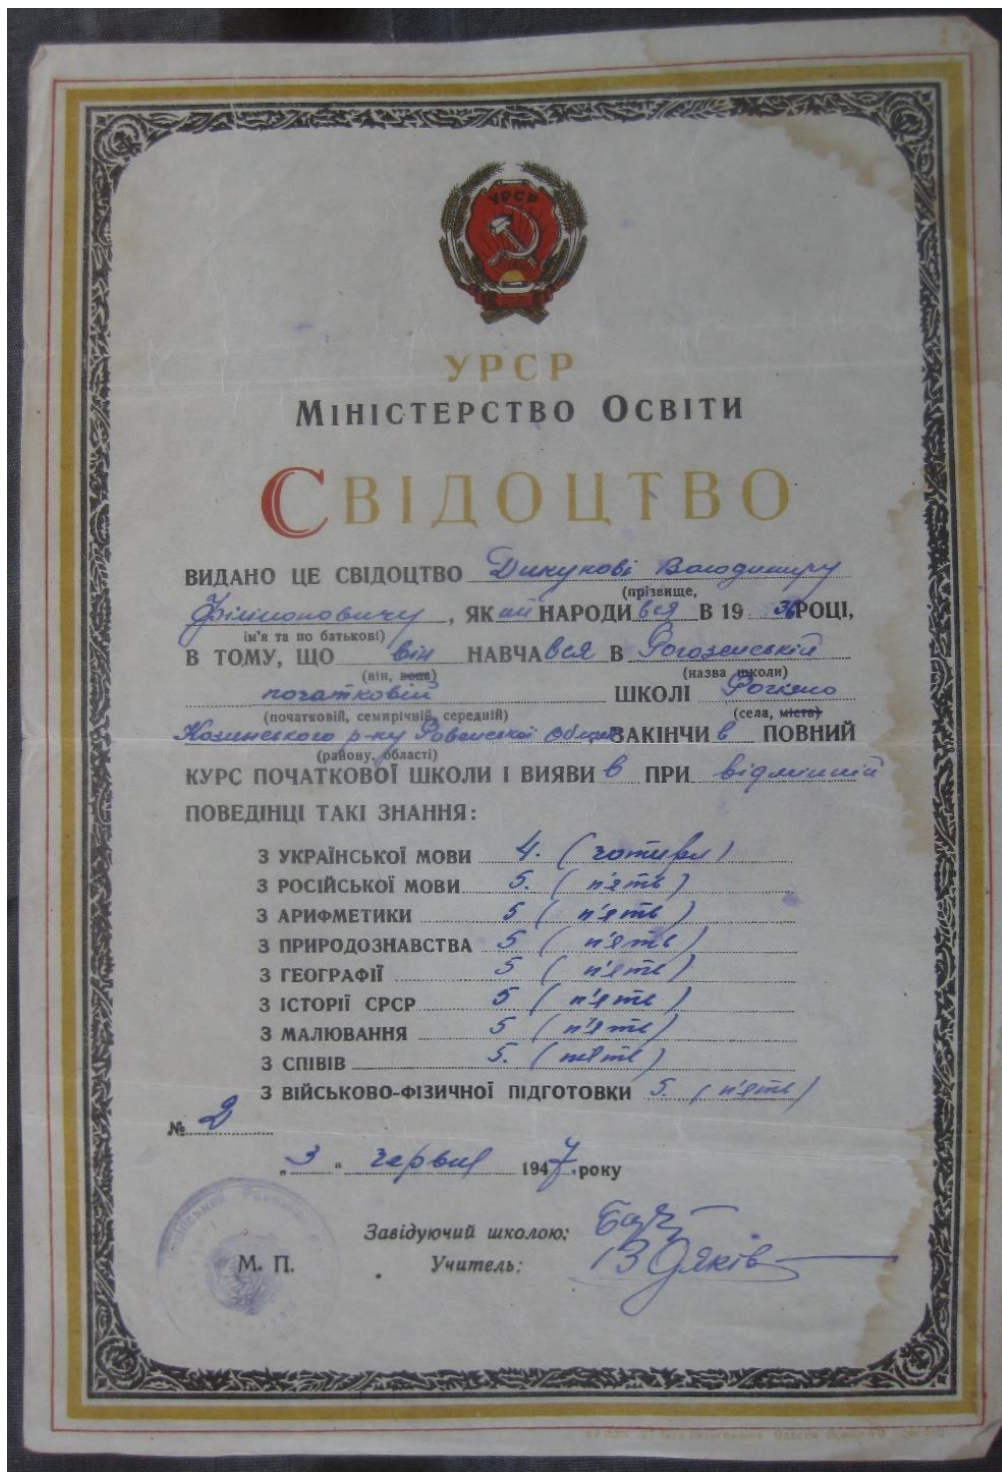 УРСР
УРСР
Міністерство Освіти
Свідоцтво
ВИДАНО ЦЕ СВІДОЦТВО Дикунові Володимиру
(прізвище,
Філімоновичу, ЯКий НАРОДИвся В 1936 РОЦІ,
ім'я та по батькові)
В ТОМУ, ЩО він НАВЧАвся В
(він, вона) (назва школи)
початковій ШКОЛІ
(початковій, семирічній, середній) (села, міста)
Козинського р-ну Ровенської області ЗАКІНЧИв ПОВНИЙ
(району, області)
КУРС ПОЧАТКОВОЇ ШКОЛИ І ВИЯВИв ПРИ відмінній
ПОВЕДІНЦІ ТАКІ ЗНАННЯ:
З УКРАЇНСЬКОЇ МОВИ 4. (чотири)
З РОСІЙСЬКОЇ МОВИ 5. (п'ять)
З АРИФМЕТИКИ 5 (п'ять)
З ПРИРОДОЗНАВСТВА 5 (п'ять)
З ГЕОГРАФІЇ 5 (п'ять)
З ІСТОРІЇ СРСР 5 (п'ять)
З МАЛЮВАННЯ 5 (п'ять)
З СПІВІВ 5. (п'ять)
З ВІЙСЬКОВО-ФІЗИЧНОЇ ПІДГОТОВКИ 5. (п'ять)
№ 2
„3" червня 1947 року
Завідуючий школою:
М. П. Учитель: В Дяків